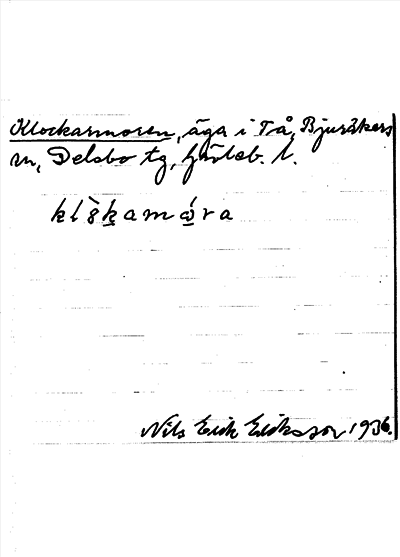 Klockarmoren, äga i Tå, Bjuråkers
sn, Delsbo tg, Gävleb. l.
Nils Erik Eriksson 1936.